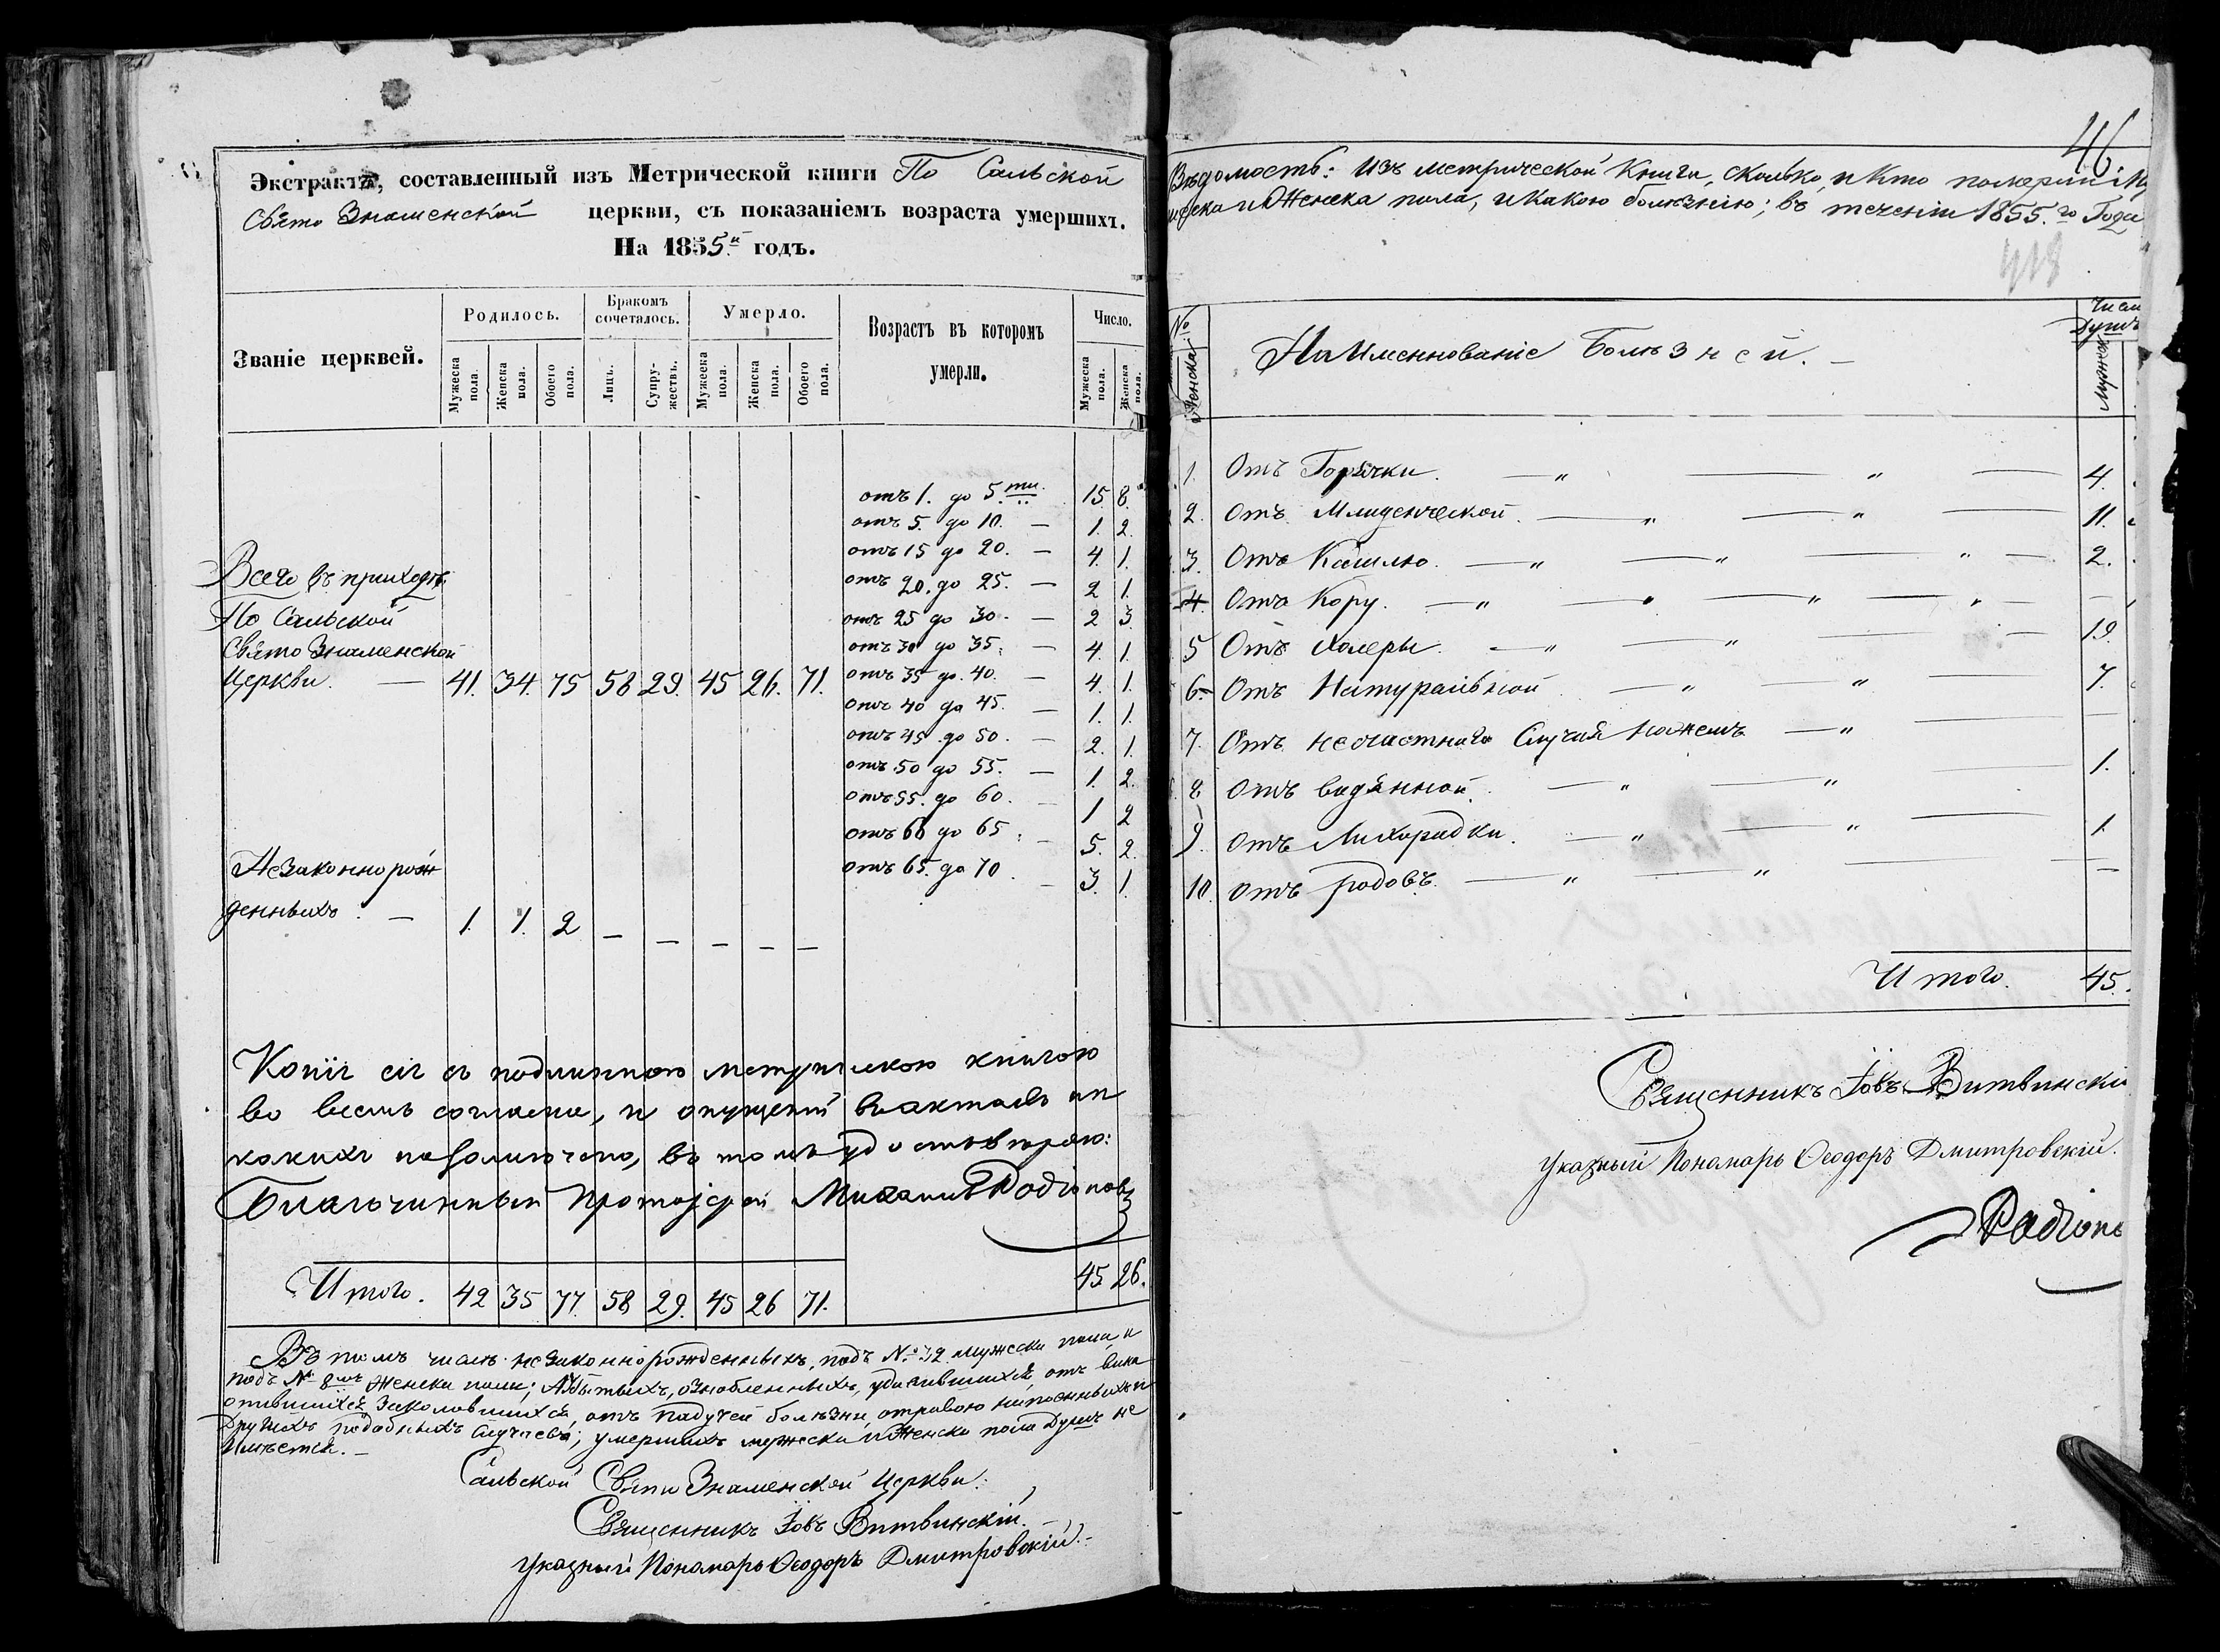 Экстрактъ, составленный изъ Метрической книги По Сальской
Свято Знаменской церкви, съ показаніемъ возраста умершихъ.
На 1855й годъ.
Званіе церквей.
Родилось.
Бракомъ сочеталось.
Умерло.
Возрастъ въ которомъ умерли.
Число.
Мужеска пола.
Женска пола.
Обоего пола.
Лицъ.
Супружествъ.
Мужеска пола.
Женска пола.
Обоего пола.
Мужеска пола.
Женска пола.
отъ 1. до 5.ти 15 8.
отъ 5. до 10. — 1. 2.
отъ 15 до 20. — 4. 1.
отъ 20. до 25. — 2 1.
отъ 25 до 30. — 2 3.
отъ 30 до 35. — 4. 1.
отъ 35 до 40. — 4. 1.
отъ 40 до 45. — 1. 1.
отъ 45 до 50. — 2. 1.
отъ 50 до 55. — 1. 2.
отъ 55. до 60. — 1 2
отъ 60 до 65. — 5. 2.
отъ 65. до 70. — 3. 1.
Всего въ приходѣ
По Сальской
Свято Знаменской
Церкви. — 41. 34. 75 58 29. 45 26. 71.
Незаконнорож
денныхъ. — 1. 1. 2 — — — — —
Копія сія съ подлинною метрическою книгою
во всемъ согласна, и опущеній въ актахъ ни
какихъ не замечено, въ томъ удостовѣряю:
Благочинный Протоіерей Михаилъ Родіоновъ
45 26.
Итого. 42 35 77. 58 29. 45 26 71.
Въ томъ числѣ незаконнорожденныхъ, подъ №. 32 мужеска пола, и
подъ № 8мъ женска пола; Убитыхъ, ознобленныхъ, удавившихся, отъ вина
опившихся, заколовшихся, отъ падучей болѣзни, отравою напоенныхъ и
Другихъ подобныхъ случаевъ; умершихъ мужеска и Женска пола Душъ не
Имѣется. —
Сальской Свято Знаменской Церкви.
Священникъ Іовъ Витвинскій. —
Указный Пономарь Ѳеодоръ Дмитровскій. —
46.
Вѣдомость: Изъ метрической Книги, сколько, и Кто померли
и Женска пола, и Какою болѣзнію; въ теченіи 1855.го Года
418
№
Женска
НаИменнованіе Болѣзней. —
Душъ
Мужеска
1. Отъ Горячки. — „ — „ — 4.
2. Отъ Младенческой. — „ — „ — 11.
3. Отъ Кашлю. — „ — „ — „ — 2.
4. Отъ Кору. — „ — „ — „ — „ —
5 Отъ Холеры. — „ — „ — 19.
6. Отъ Натуральной. — „ — „ — 7.
7. Отъ несчастнаго Случая ножемъ — „ — —
8. отъ водянной. — „ — „ — 1.
9. отъ Лихорадки. — „ — „ — 1.
10. отъ родовъ. — „ — „ — —
Итого. 45.
Священникъ Іовъ Витвинскі
Указный Пономарь Ѳеодоръ Дмитровскій.
Родіоно